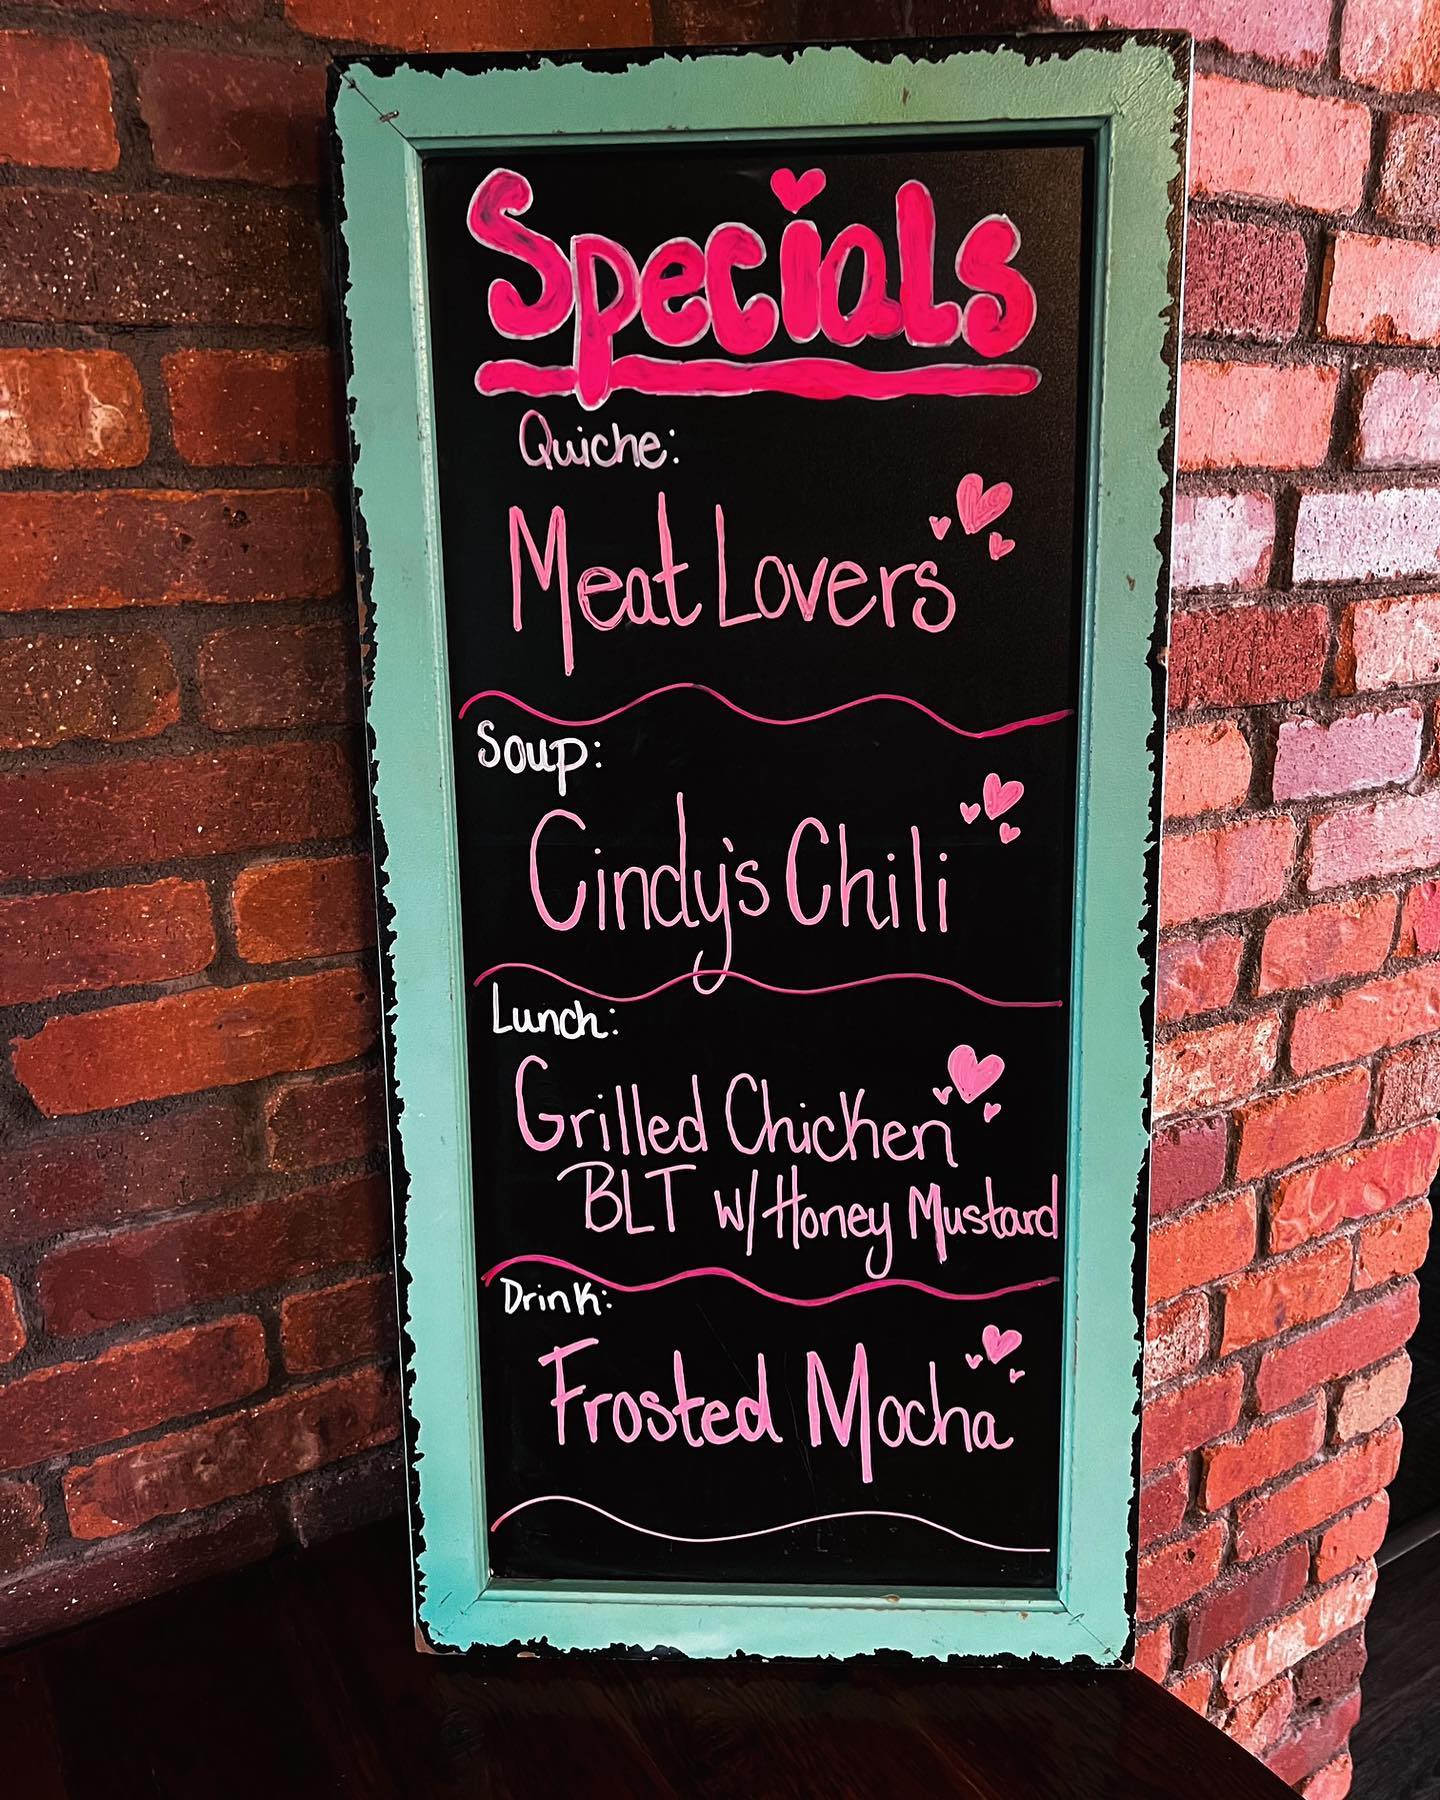 Specials
Quiche:
Meat Lovers
Soup:
Cindy's Chili
Lunch:
Grilled Chicken
BLT w/ Honey Mustard
Drink:
Frosted Mocha